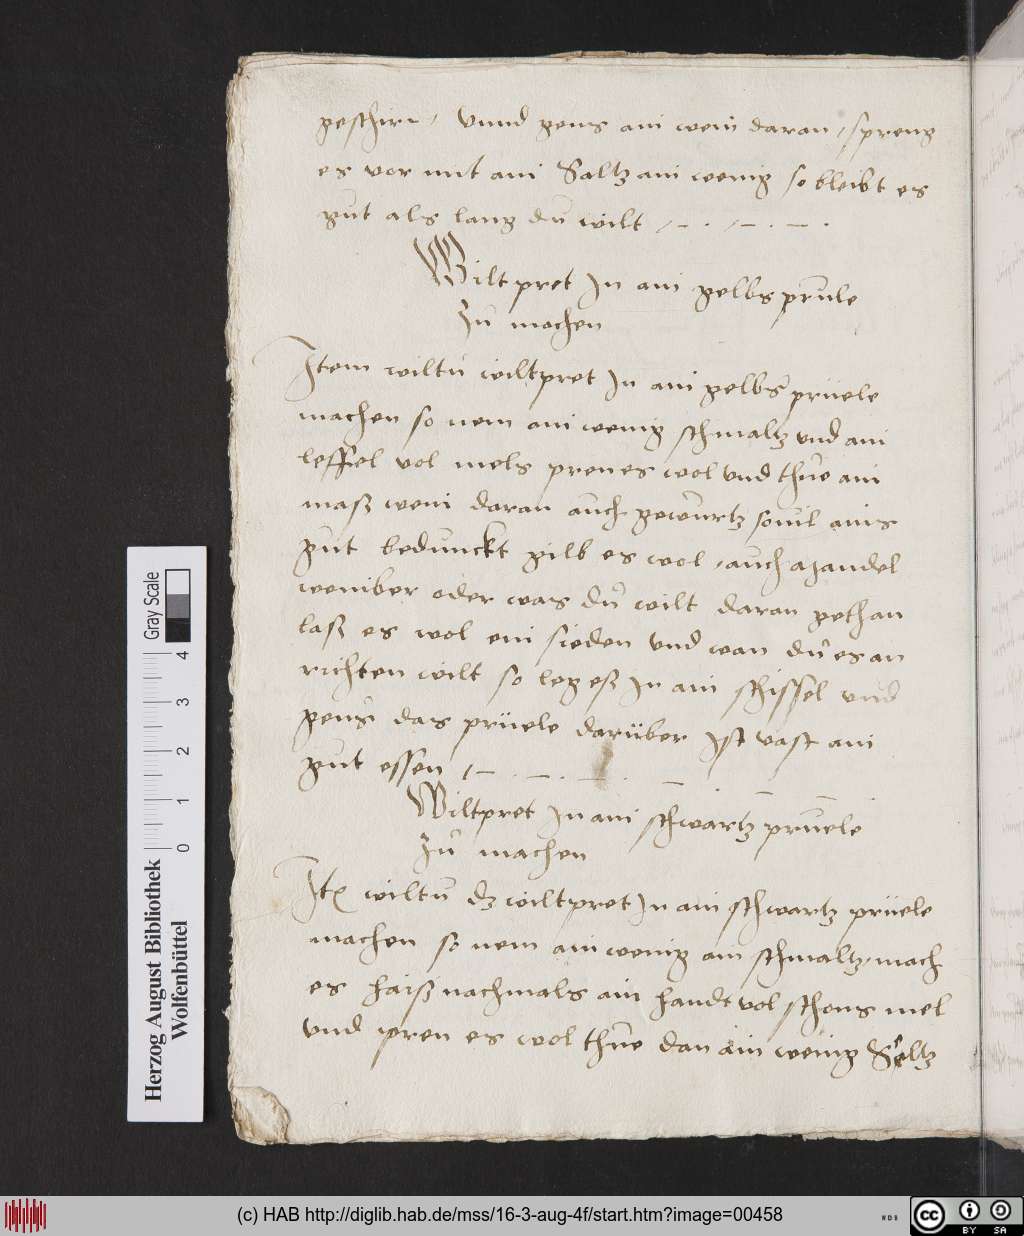 geschirr, vnnd geus ain wein daran, spreng
es vor mit ain Saltz ain wenig so bleibt es
gut als lang dů wilt
Wiltpret In ain gelbs prüle
Zů machen
Item wiltu wiltpret In ain gelbs prüele
machen so nem ain wenig schmaltz vnd ain
leffel vol mels pren es wol vnd thůe ain
maß wein daran auch gewürtz souil ains
gut bedunckt gilb es wol, auch mandel
weinber oder was dů wilt daran gethan
laß es wol ein sieden vnd wan dů es an
richten wilt so leg eß In ain schissel vnd
geus das prüele darüber Ist vast ain
gut essen
Wiltpret In ain schwartz pruele
Zů machen
Itē wiltu dz wiltpret In ain schwartz prüele
machen so nem ain wenig ain schmaltz, mach
es haiß nachmals ain handt vol schons mel
vnd pren es wol thůe dan ain wenig Seltz
Herzog August Bibliothek
Wolfenbüttel
0 1 2 3 4
Gray Scale
(c) HAB http://diglib.hab.de/mss/16-3-aug-4f/start.htm?image=00458
WDB
cc BY SA